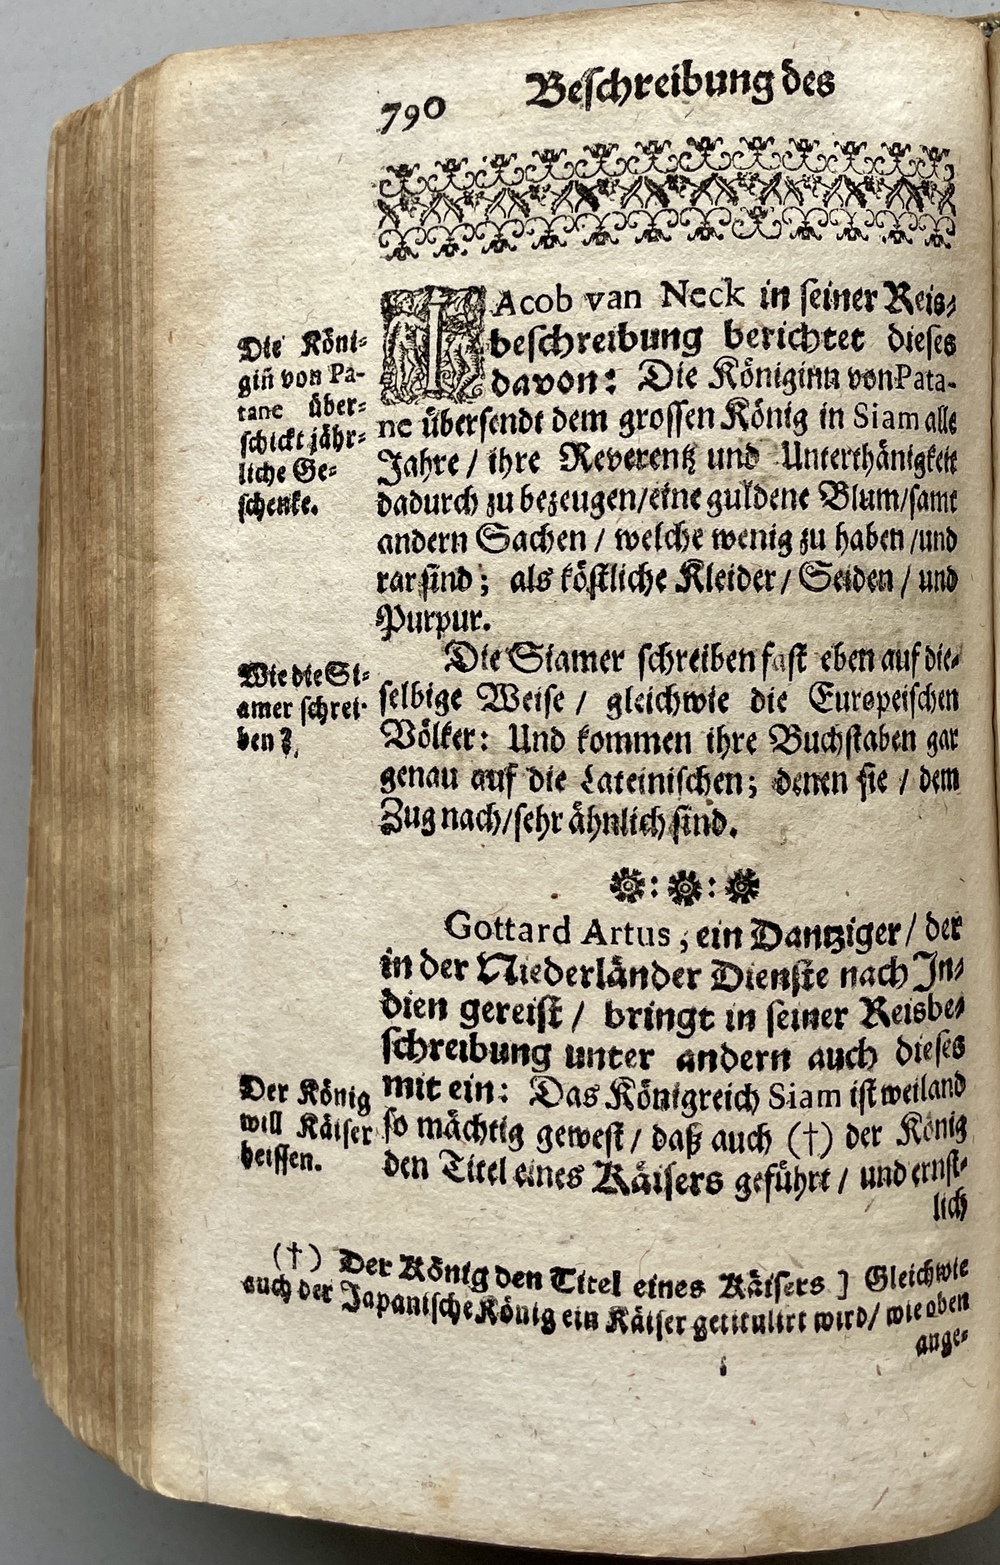 790
Beschreibung des
JAcob van Neck in seiner Reis-
beschreibung berichtet dieses
davon: Die Königinn von Pata-
ne übersendt dem grossen König in Siam alle
Jahre / ihre Reverentz und Unterthänigkeit
dadurch zu bezeugen/eine guldene Blum/samt
andern Sachen / welche wenig zu haben /und
rar sind; als köstliche Kleider / Seiden / und
Purpur.
Die Köni-
gin̄ von Pa-
tane über-
schickt jähr-
liche Ge-
schenke.
Die Siamer schreiben fast eben auf die-
selbige Weise / gleichwie die Europeischen
Völker: Und kommen ihre Buchstaben gar
genau auf die Lateinischen; denen sie / dem
Zug nach/sehr ähnlich sind.
Wie die Si-
amer schrei-
ben?
Gottard Artus, ein Dantziger / der
in der Niederländer Dienste nach In-
dien gereist / bringt in seiner Reisbe-
schreibung unter andern auch dieses
mit ein: Das Königreich Siam ist weiland
so mächtig gewest / daß auch (†) der König
den Titel eines Käisers geführt / und ernst-
lich
Der König
will Käiser
heissen.
(†) Der König den Titel eines Käisers ] Gleichwie
auch der Japanische König ein Käiser getitulirt wird/ wie oben
ange-